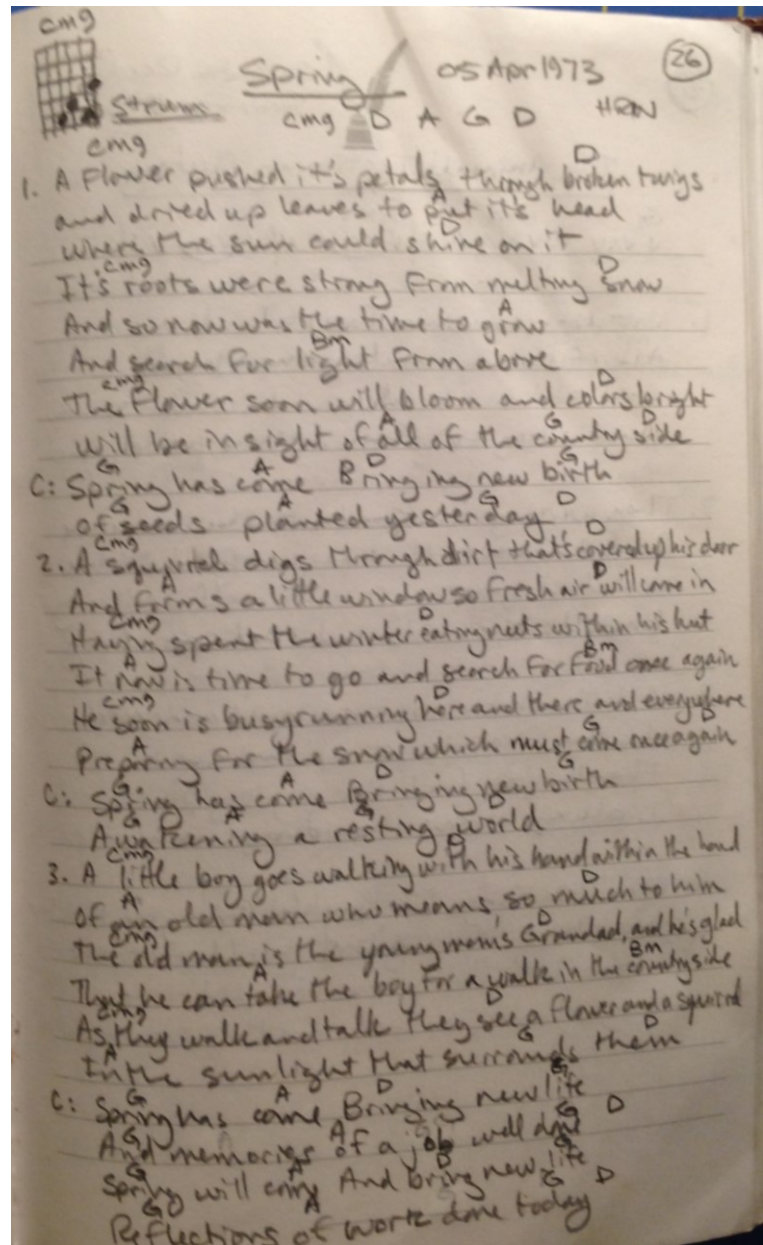 cmg
Spring 05 Apr 1973 26
Strum cmg D A G D HRN
cmg
D
1. A Flower pushed it's petals through broken twigs
A
and dried up leaves to put it's head
D
where the sun could shine on it
cmg D
It's roots were strong from melting snow
A
And so now was the time to grow
Bm
And search for light from above
cmg D
The flower soon will bloom and colors bright
A G D
will be in sight of all of the country side
G A D G
C: Spring has come Bringing new birth
G A G D
of seeds planted yesterday
cmg D
2. A squirrel digs through dirt that's covered up his door
A D
And forms a little window so fresh air will come in
cmg D
Having spent the winter eating nuts within his hut
A Bm
It now is time to go and search for food once again
cmg D
He soon is busy running here and there and everywhere
A G D
Preparing for the snow which must come once again
G A D G
C: Spring has come Bringing new birth
G A G D
Awakening a resting world
cmg D
3. A little boy goes walking with his hand within the hand
A D
Of an old man who means so much to him
cmg D
The old man is the young mom's Grandad, and he's glad
A Bm
That he can take the boy for a walk in the countryside
cmg D
As they walk and talk they see a flower and a squirrel
A G D
In the sunlight that surrounds them
G A D G
C: Spring has come Bringing new life
G A G D
And memories of a job well done
G A D G
Spring will come And bring new life
G A G D
Reflections of work done today